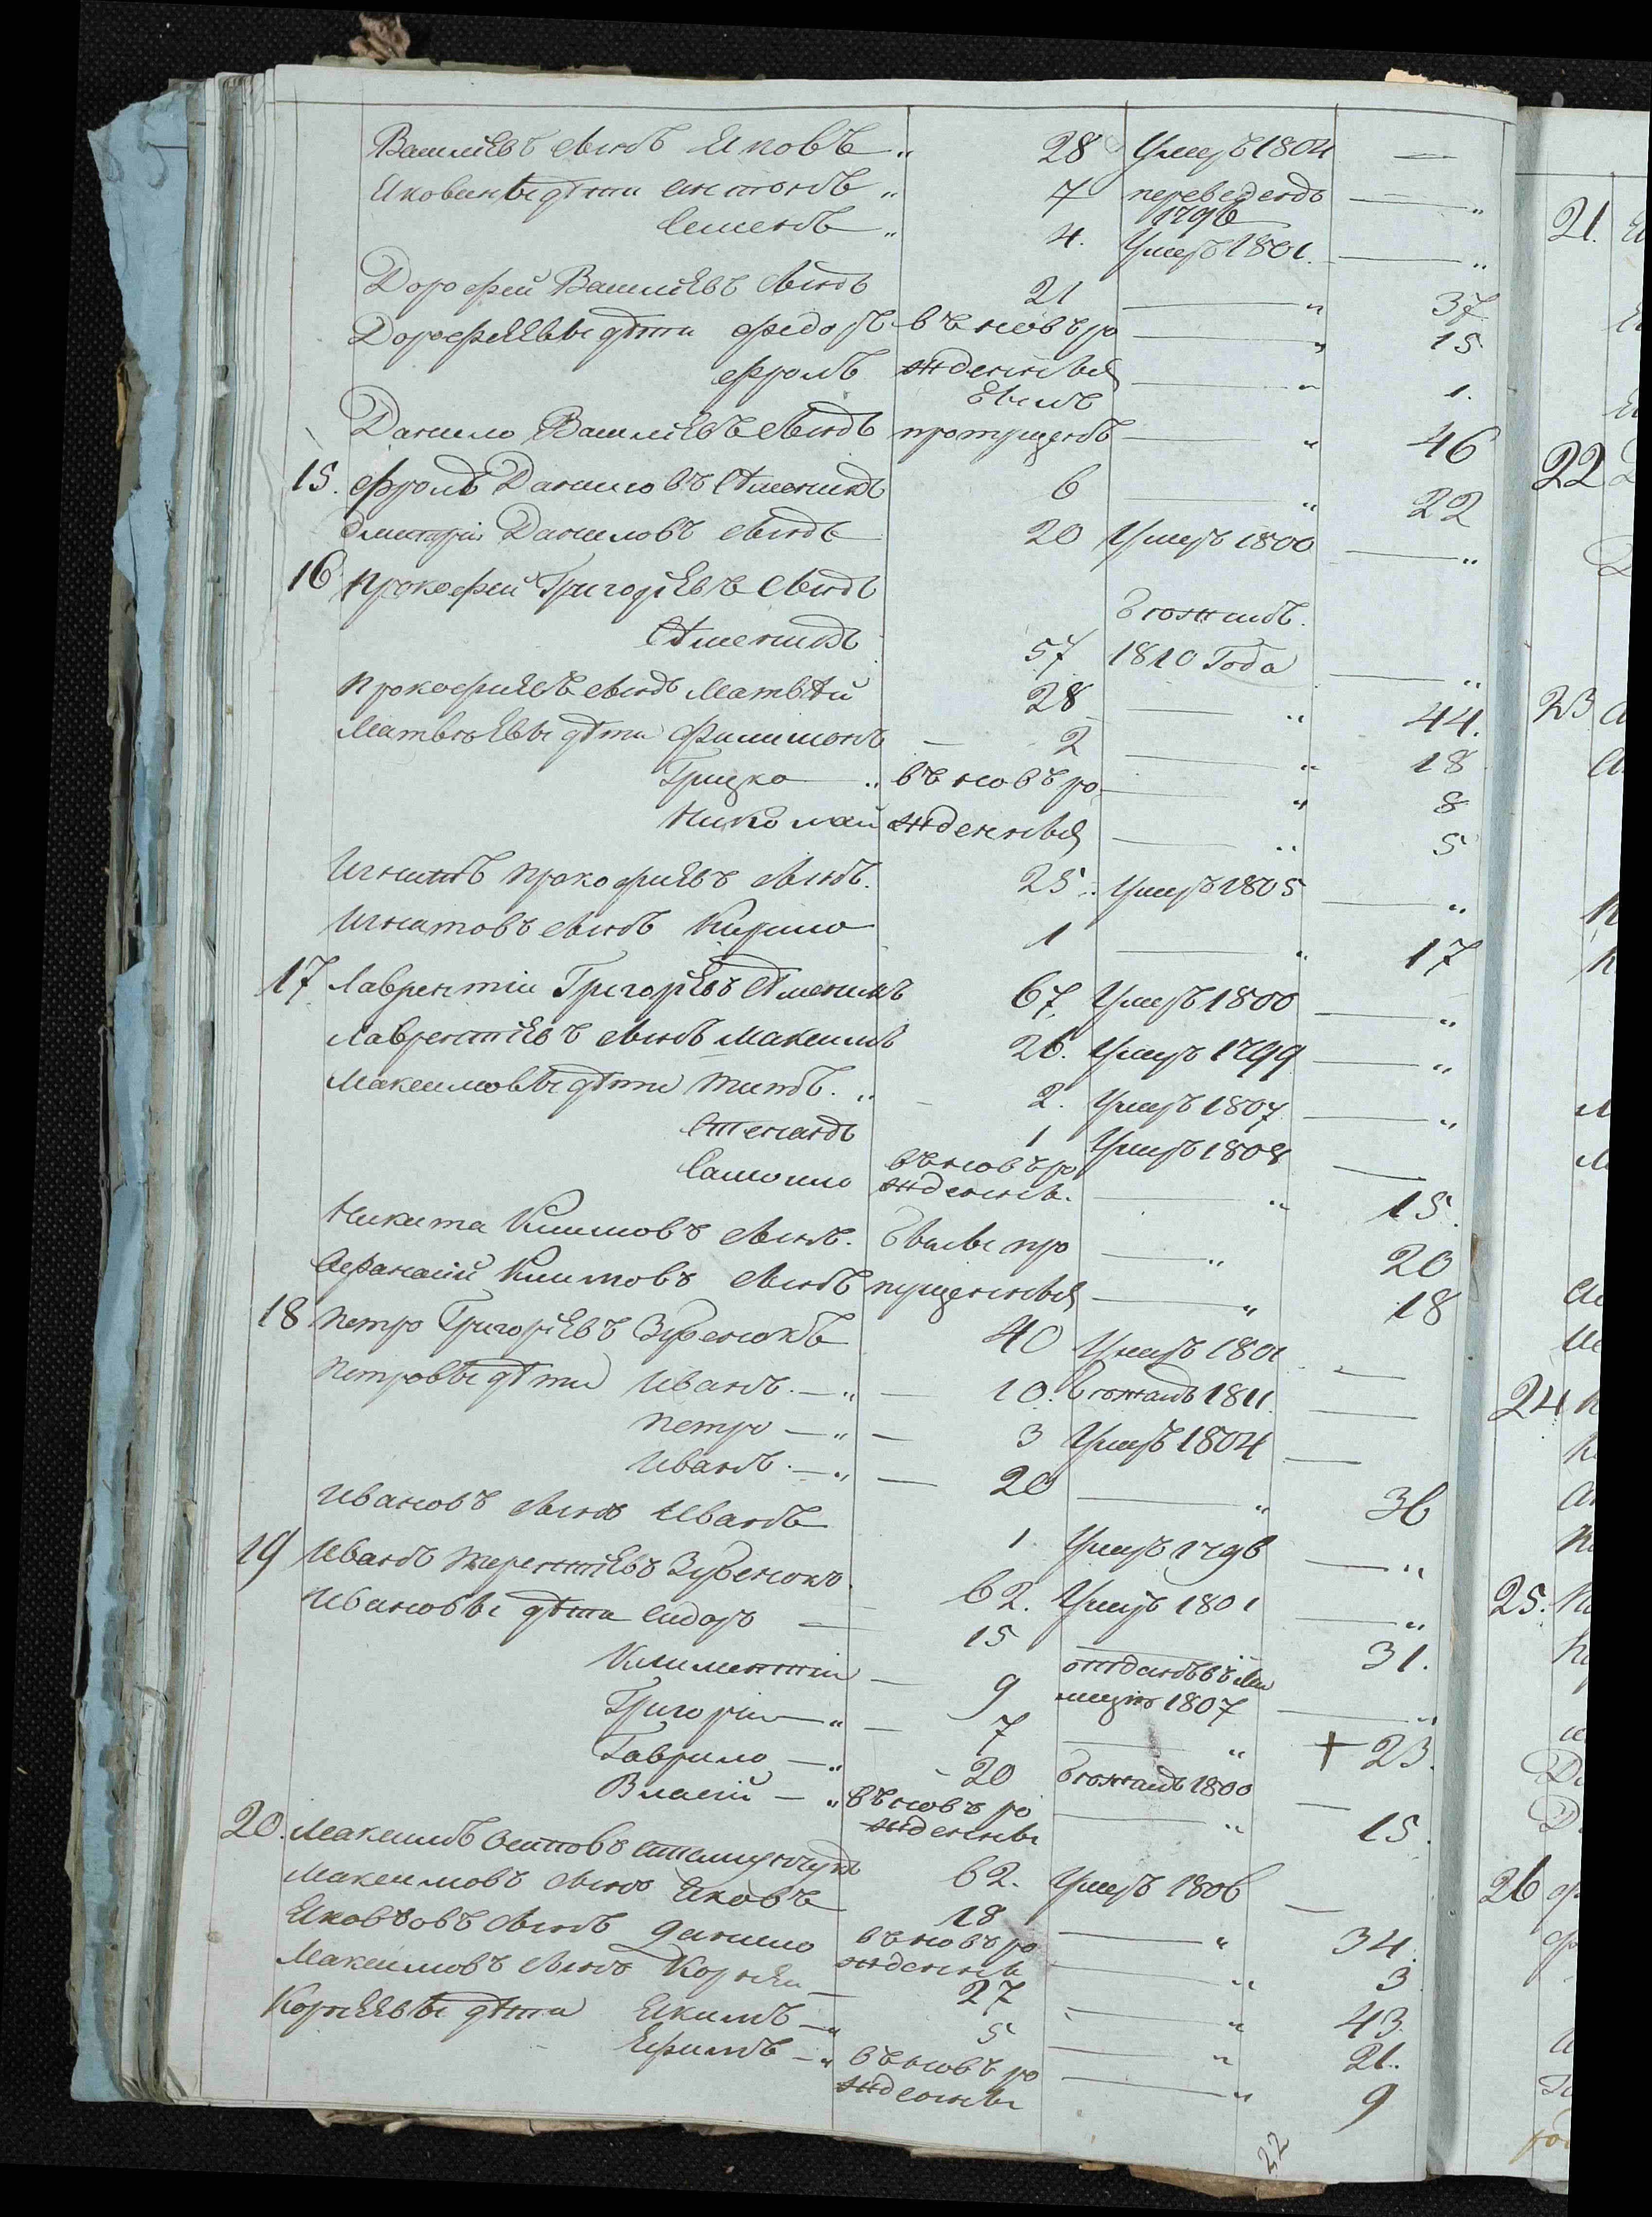 Василіевъ сынъ Яковъ " 28 Умеръ 1804 —
Яковлевы дѣти Антонъ " 7 переведенъ — "
1796
Семенъ " 4. Умеръ 1801. — "
Дорофей Василіевъ сынъ 21 — " 37
Дорофѣевы дѣти Федоръ въ новъ ро — " 15
Фролъ жденныя — " 1.
Былъ
Данило Василіевъ сынъ пропущенъ — " 46
15. Фролъ Даниловъ 6 — " 22
Дмитрій Даниловъ сынъ 20 Умеръ 1800 — "
16 Прокофей Григорьевъ сынъ
бежалъ.
57 1810 Года — "
Прокофиевъ сынъ Матвѣй 28 — " 44.
Матвѣевы дѣти Филимонъ — 2 — " 18
Грицко " въ новъ ро — " 8
Николай жденныя — " 5
Игнатъ Прокофиевъ сынъ. 25. Умеръ 1805 — "
Игнатовъ сынъ Кирило 1 — " 17
17 Лаврентіи Григорьевъ 67. Умеръ 1800 — "
Лаврентіевъ сынъ Максимъ 26. Умеръ 1799 — "
Максимовы дѣти Титъ. " — 2. Умеръ 1807 — "
Степанъ 1 Умеръ 1808 —
Самоило въ новъ ро
жденны. — " 15.
Никита Климовъ сынъ. Былы про — " 20
Афанасій Климовъ сынъ пущенныя — " 18
18 Петро Григорьевъ Зубенокъ 40 Умеръ 1801 —
Петровы дѣти Иванъ. — " — 10. бежалъ 1811 —
Петро — " — 3 Умеръ 1804 —
Иванъ. — " — 20 — " 36
Ивановъ сынъ Иванъ 1. Умеръ 1796 — "
19 Иванъ Терентіевъ Зубенокъ. 62. Умеръ 1801 — "
Ивановы дѣти Сидоръ — 15 — " 31.
Климентіи — 9 отданъ въ ми
лицію 1807 — "
Григоріи — " — 7 — " + 23.
Гаврило — " — 20 бежалъ 1800 —
Власій — " въ новъ ро
жденны — " 15.
20. Максимъ Осиповъ 62. Умеръ 1806 —
Максимовъ сынъ Яковъ 18 — " 34.
Яковъовъ сынъ Данило въ новъ ро
жденны — " 3
Максимовъ сынъ Корнѣи — 27 — " 43.
Корнѣевы дѣти Якимъ — " 5 — " 21.
Ефимъ — " въ новъ ро
жденны — " 9
22
21.
22
23
24
25.
26